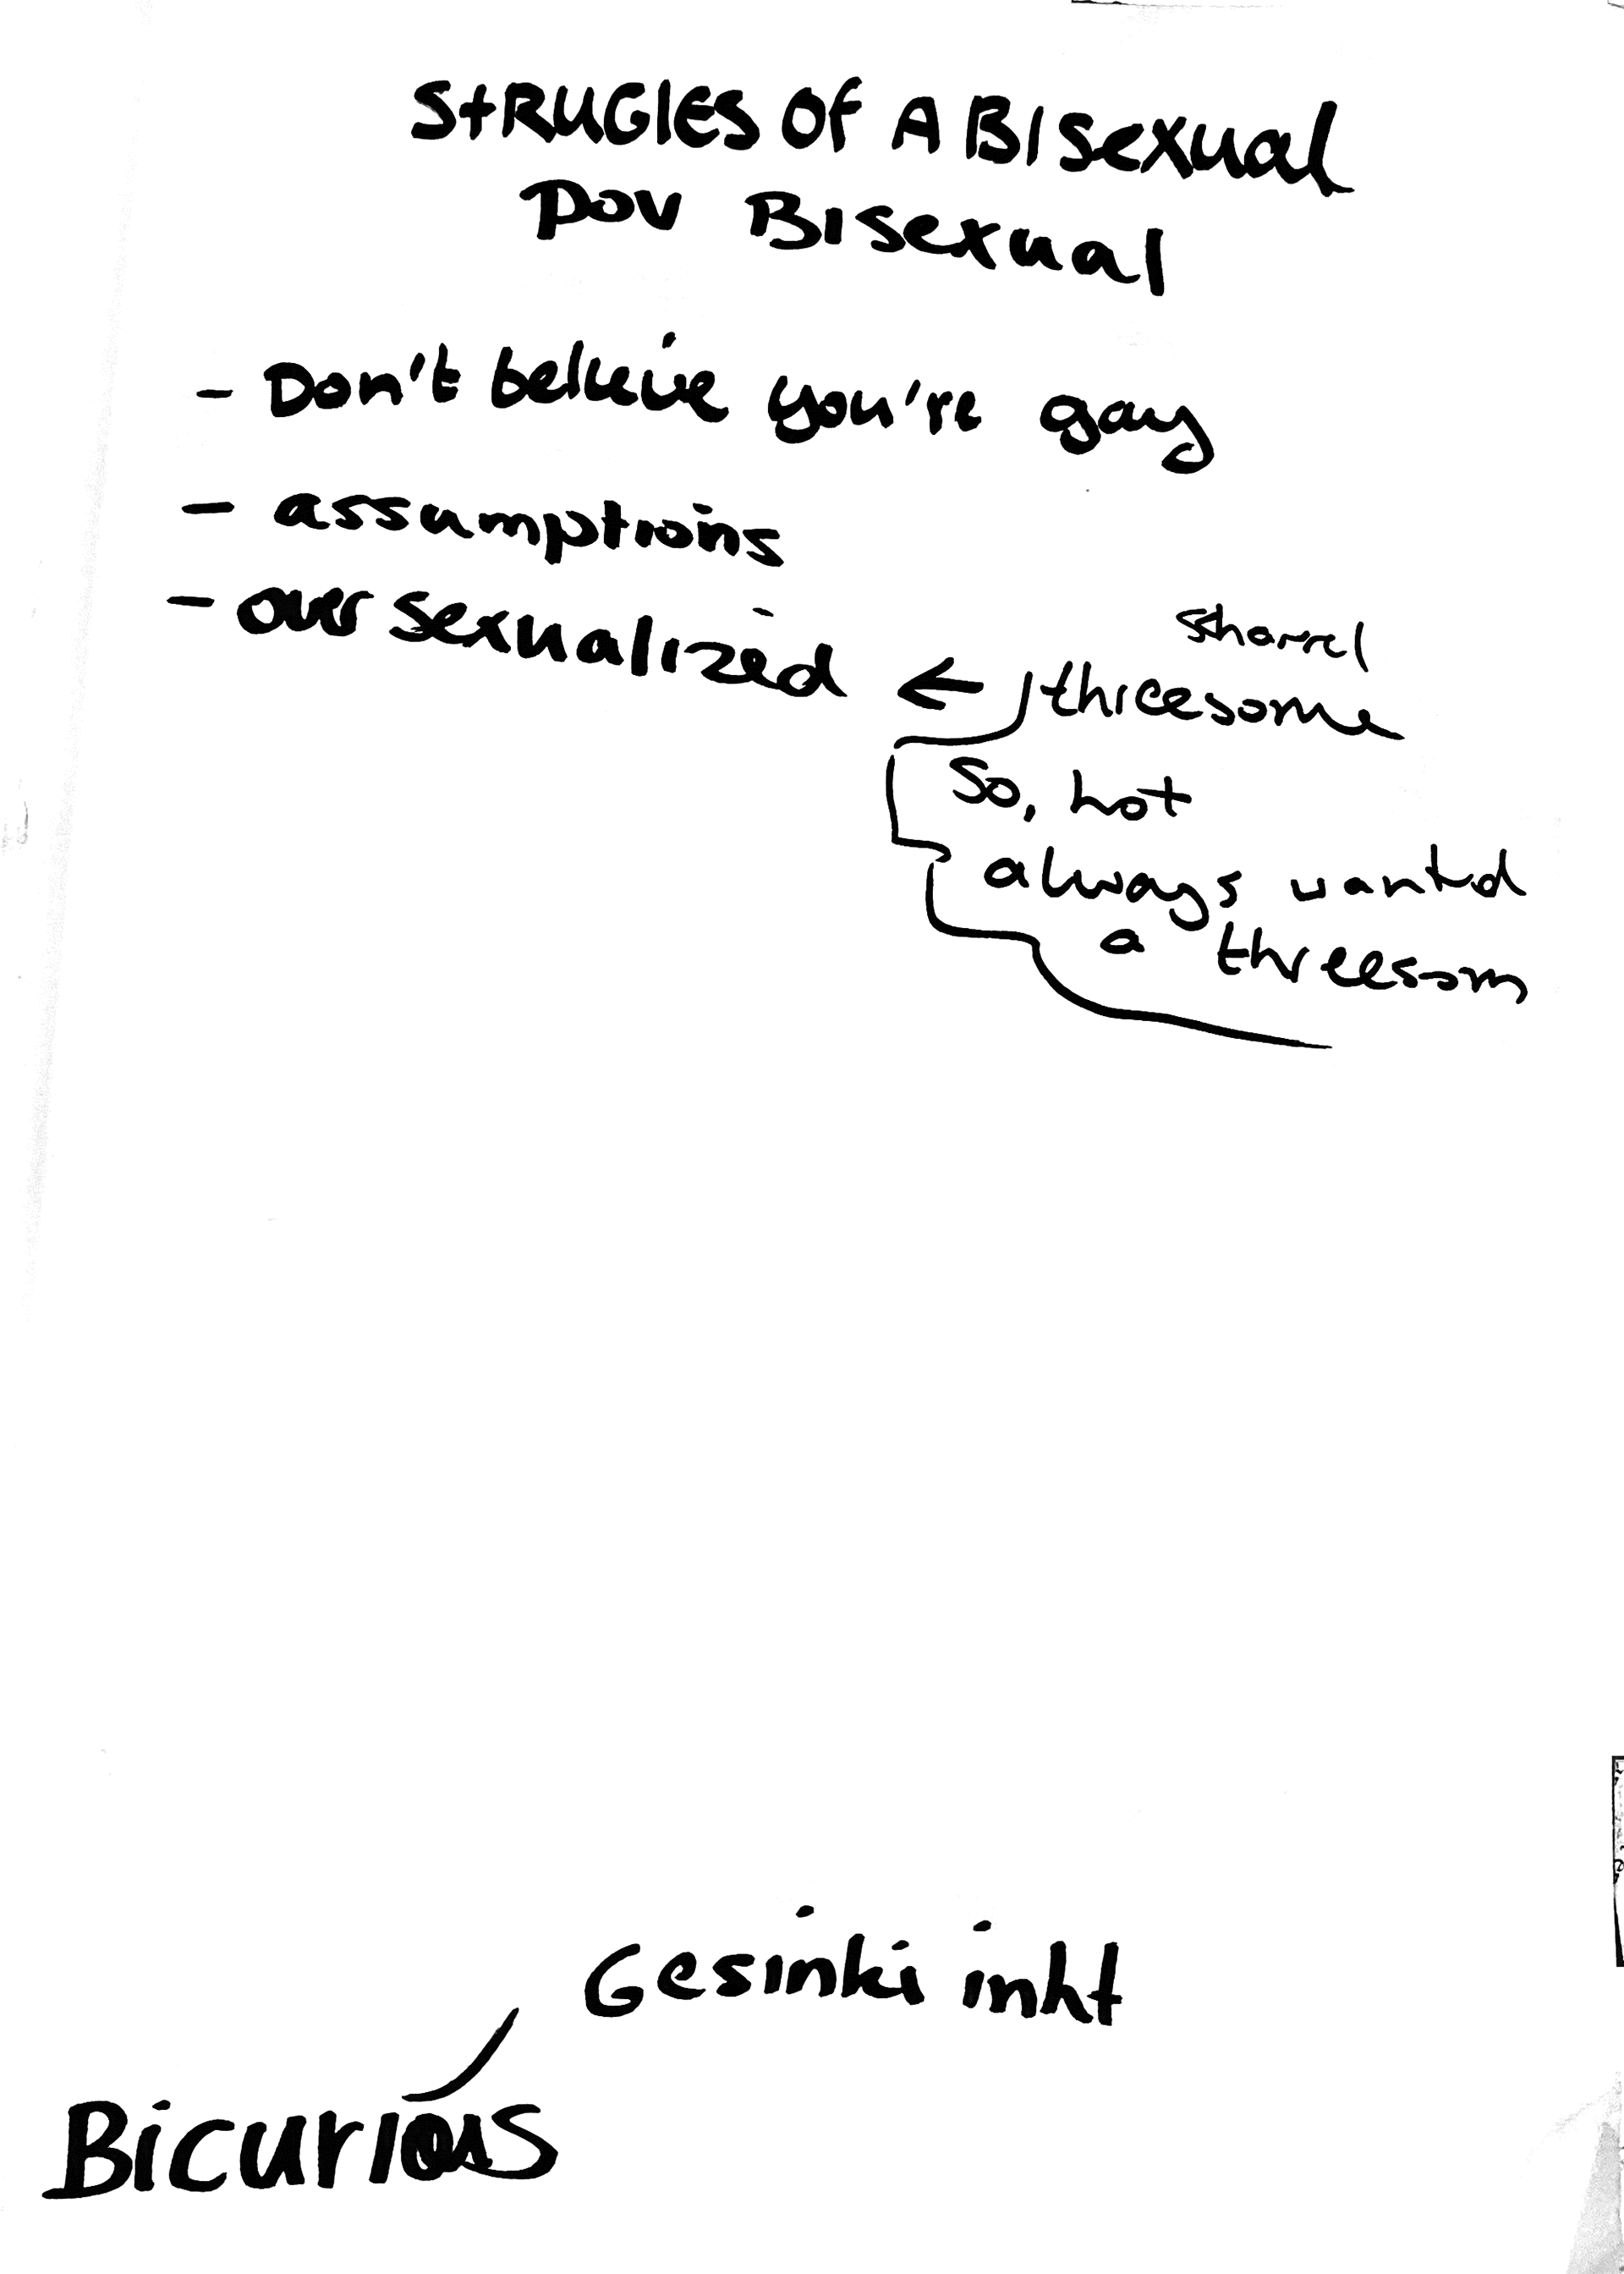 StRUGlES OF A BIsexual
POV BIsexual
- Don't beleive you're gay
- assumptions
- over sexualized ←
threesome
So, hot
always wanted
a threesom
Gesinki inkt
Bicurious